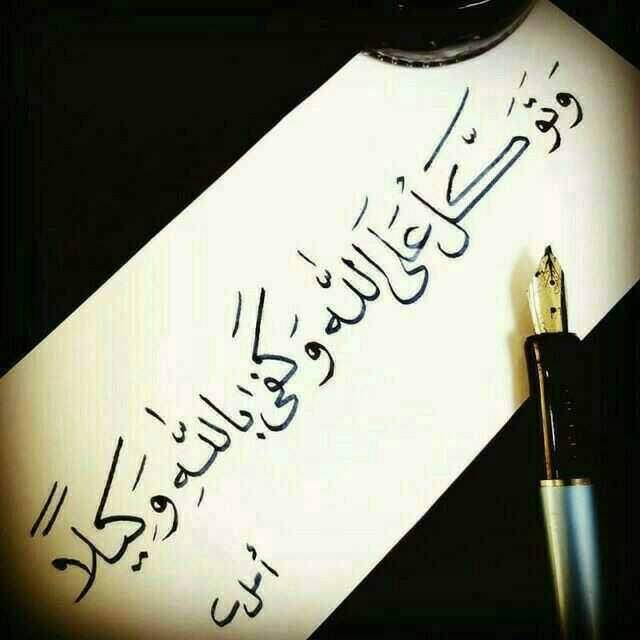 وَتَوَكَّل عَلَى اللَّه وَكَفَىٰ بَاللَّهِ وَكِيلاً
أمل